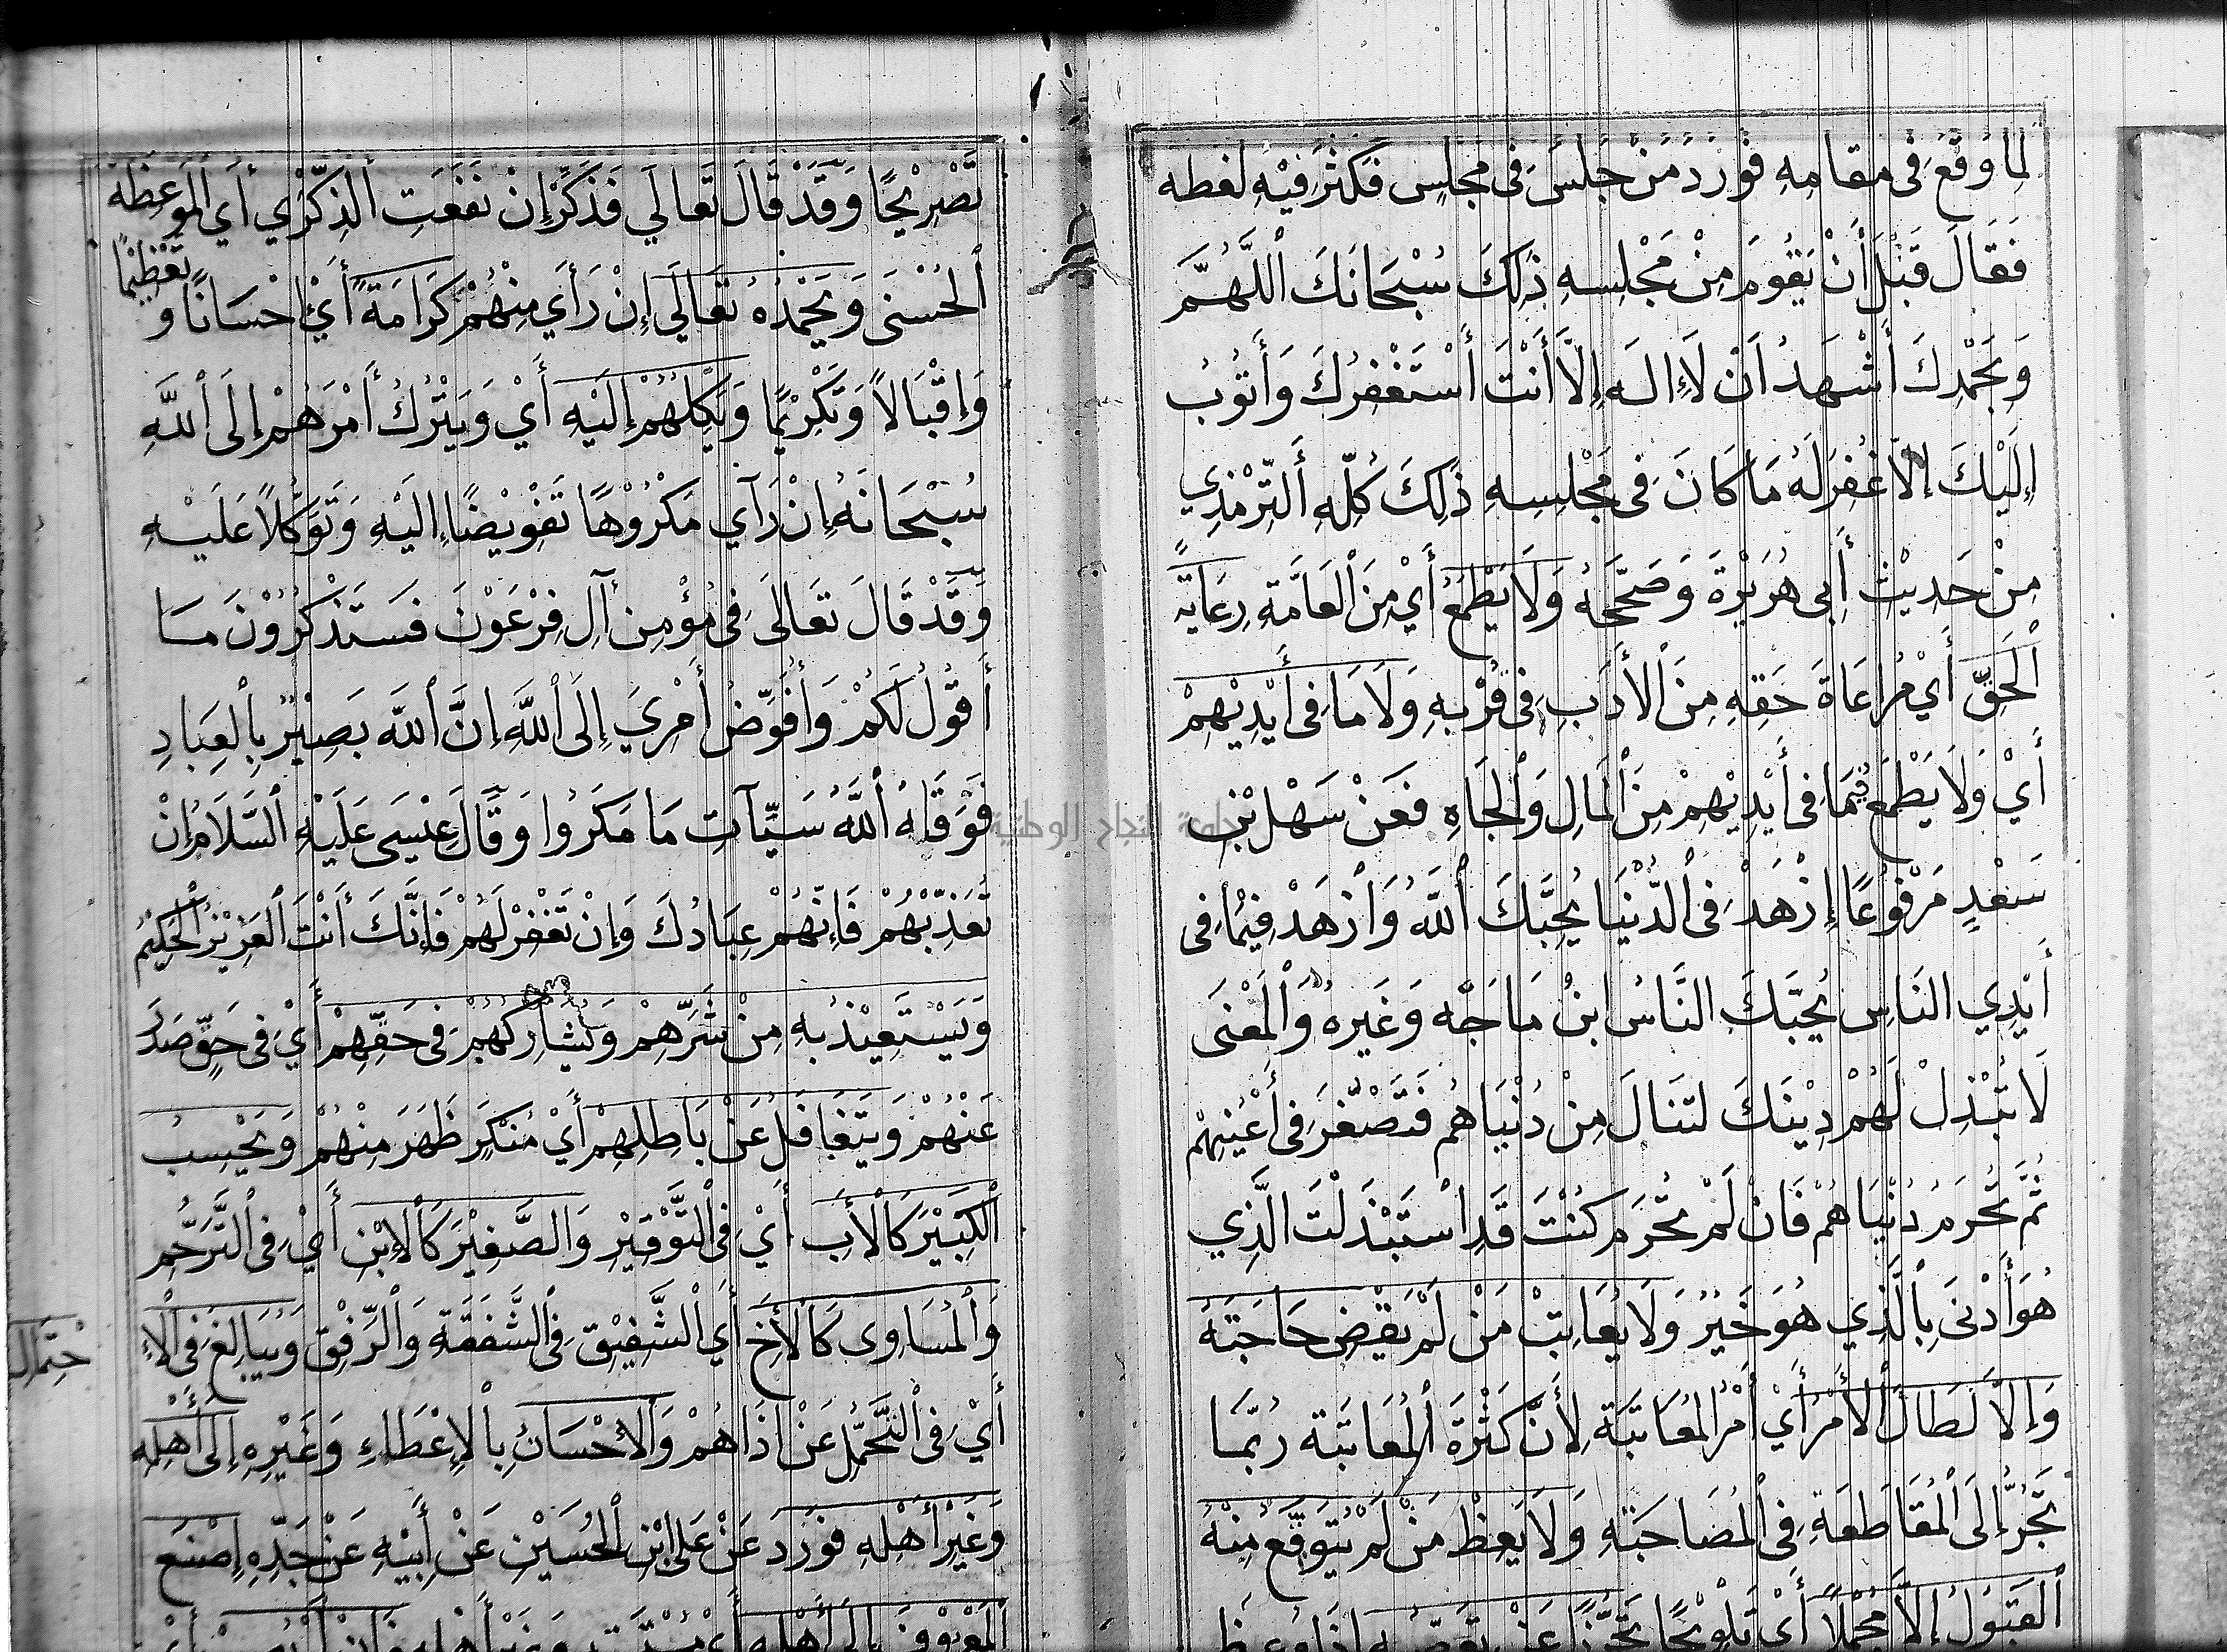 لِمَا وَقَعَ فِى مَقَامِهِ فَوَرَدَ مَنْ جَلَسَ فِى مَجْلِسٍ فَكَثُرَ فِيْهِ لَغَطُه
فَقَالَ قَبْلَ أَنْ يَقُومَ مِنْ مَجْلِسِهِ ذٰلِكَ سُبْحَانَكَ ٱللَّهُمَّ
وَبِحَمْدِكَ أَشْهَدُ اَنْ لَاإِلٰهَ إِلَّا أَنْتَ أَسْتَغْفِرُكَ وَأَتُوبُ
إِلَيْكَ إِلَّا غُفِرَ لَهُ مَا كَانَ فِى مَجْلِسِهِ ذٰلِكَ كُلِّهِ أَلتِّرْمِذِي
مِنْ حَدِيْثِ أَبِى هُرَيْرَةَ وَصَحَّحَهُ وَلَا يَطْمَعُ أَيْ مِنَ ٱلْعَامَّةِ رِعَايَةً
ٱلْحَقِّ أَيْ مُرَاعَاةَ حَقِهِ مِنَ ٱلْأَدَبِ فِى قُرْبِهِ وَلَا مَا فِى أَيْدِيْهِمْ
أَيْ وَلَا يَطْمَعُ فِيْمَا فِى أَيْدِيْهِمْ مِنَ ٱلْمَالِ وَٱلْجَاهِ فَعَنْ سَهْلِ بْنِ
سَعْدٍ مَرْفُوْعًا إِزْهَدْ فِى ٱلدُّنْيَا يُحِبَّكَ ٱللّٰهُ وَاَزْهَدْ فِيْمَا فِى
أَيْدِي النَاسِ يُحِبَّكَ النَّاسُ ابنُ مَاجَّه وَغَيرهُ وَٱلْمَعْنَى
لَا تَبْذِلْ لَهُمْ دِيْنَكَ لتَنَالَ مِنْ دُنْيَاهُم فَتَصْغُرَ فِى أَعْيُنِهِمْ
ثُمَّ تُحْرَمُ دُنْيَاهُمْ فَانْ لَمْ تُحْرَم كُنْتَ قَدِ اسْتَبْدَلْتَ الَّذِي
هُوَ أَدْنَى بِالَّذِي هُوَ خَيْرٌ وَلَا يُعَاتِبُ مَنْ لَمْ يَقْضِ حَاجَتَهُ
وَإِلَّا لَطَالَ ٱلْأَمْرُ أَيْ أَمْرُ الْمُعَاتَبَةِ لِأَنَّ كَثْرَةَ ٱلْمُعَاتَبَة رُبَّمَا
تَجُرُّ إِلَى ٱلْمُقَاطَعَةِ فِى ٱلْمُصَاحَبَةِ وَلَا يَعِظُ مَنْ لَمْ يَتَوَقَّعْ مِنْهُ
ٱلْقَبُوْلَ إِلَّا مُجْمَلًا أَيْ تَلْوِيْحًا تَحَرُّزًا عَنْ
تَصْرِيْحًا وَقَدْ قَالَ تَعَالَي فَذَكِّرْ إِنْ نَفَعَتِ ٱلذِّكْرٰي أَيِ الْمَوْعِظَةُ
ٱلْحُسْنَى وَيَحْمَدُهُ تَعَالَى إِنْ رَأَي مِنْهُمْ كَرَامَةً أَيْ إِحْسَانًا وَ تَعْظِيْمًا
وَإِقْبَالاً وَتَكْرِيْمًا وَيَكِلُهُمْ إِلَيْهِ أَيْ وَيَتْرُكُ أَمْرَهُمْ إِلَى ٱللّٰهِ
سُبْحَانَهُ إِنْ رَآي مَكْرُوْهًا تَفْوِيْضًا إِلَيْهِ وَتَوَكُّلاً عَلَيْهِ
وَقَدْ قَالَ تَعَالَى فِى مُؤْمِنِ آلِ فِرْعَوْنَ فَسَتَذْكُرُوْنَ مَا
أَقُوْلُ لَكُمْ وَأُفَوِّضُ أَمْرِيَ إِلَى ٱللّٰهِ إِنَّ ٱللّٰهَ بَصِيْرٌ بِٱلْعِبَادِ
فَوَقَاهُ ٱللّٰهُ سَيِّآتِ مَا مَكَرُوا وَقَالَ عِيْسَى عَلَيْهِ ٱلسَّلَامُ إِنْ
تُعَذِّبْهُمْ فَإِنَّهُمْ عِبَادُكَ وَإِنْ تَغْفِرْ لَهُمْ فَإِنَّكَ أَنْتَ ٱلْعَزِيْزُ ٱلْحَكِيْمُ
وَيَسْتَعِيْذُ بِهِ مِنْ شَرِّهِمْ وَيُشَارِكُهُمْ فِى حَقِّهِمْ أَيْ فِى حَقٍّ صَدَرَ
عَنْهُمْ وَيَتَغَافَلُ عَنْ بَاطِلِهِمْ أَيْ مُنْكَرٍ ظَهَرَ مِنْهُمْ وَيَحْسِبُ
ٱلْكَبِيْرَ كَالْأَبِ أَيْ فِى ٱلتَّوْقِيْرِ وَالصَّغِيْرَ كَالْاِبْنِ أَيْ فِى ٱلتَّرَحُّمِ
وَٱلْمُسَاوِى كَالْأَخِ أَيِ ٱلشَّفِيْقِ فِى ٱلشَّفَقَةِ وَٱلرِّفْقِ وَيُبَالِغُ فِى ٱلْاِ
حْتِمَالِ
أَيْ فِى ٱلتَّحَمُّلِ عَنْ اَذَاهُمْ وَٱلْاِحْسَانِ بِالْاِعْطَاءِ وَغَيْرِهِ إِلَى أَهْلِهِ
وَغَيْرِ أَهْلِهِ فَوَرَدَ عَنْ عَلِى ابْنِ ٱلْحُسَيْنِ عَنْ أَبِيْهِ عَنْ جَدِّهِ اِصْنَعِ
ٱلْمَعْرُوْفَ إِلَى أَهْلِهِ